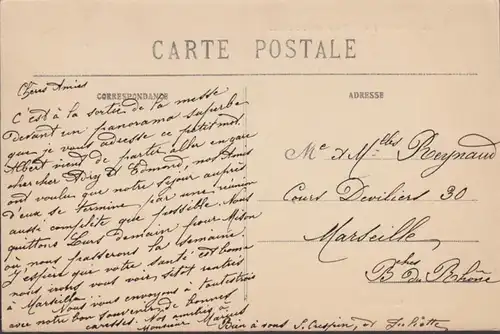 CARTE POSTALE
CORRESPONDANCE
ADRESSE
Chères Amies
C'est à la sortie de la messe
Devant un panorama superbe
que je vous adresse ce petit mot.
Albert vient de partir aller en gare
chercher Edmond, nos Amis
ont voulu que notre séjour auprès
d'eux se termine par une réunion
aussi complète que possible. Nous
quittons Tous demain pour
où nous passerons la semaine.
J'espère que votre santé est bonne
nous irons vous voir, sitôt rentrés
à Marseille. Nous vous envoyons à Toutes trois
avec notre bon souvenir de bonnes
caresses. Nos amitiés à
Monsieur
Bien à vous
Me & Mlles Reynaud
Cours Devilliers 30
Marseille
Bches du Rhône